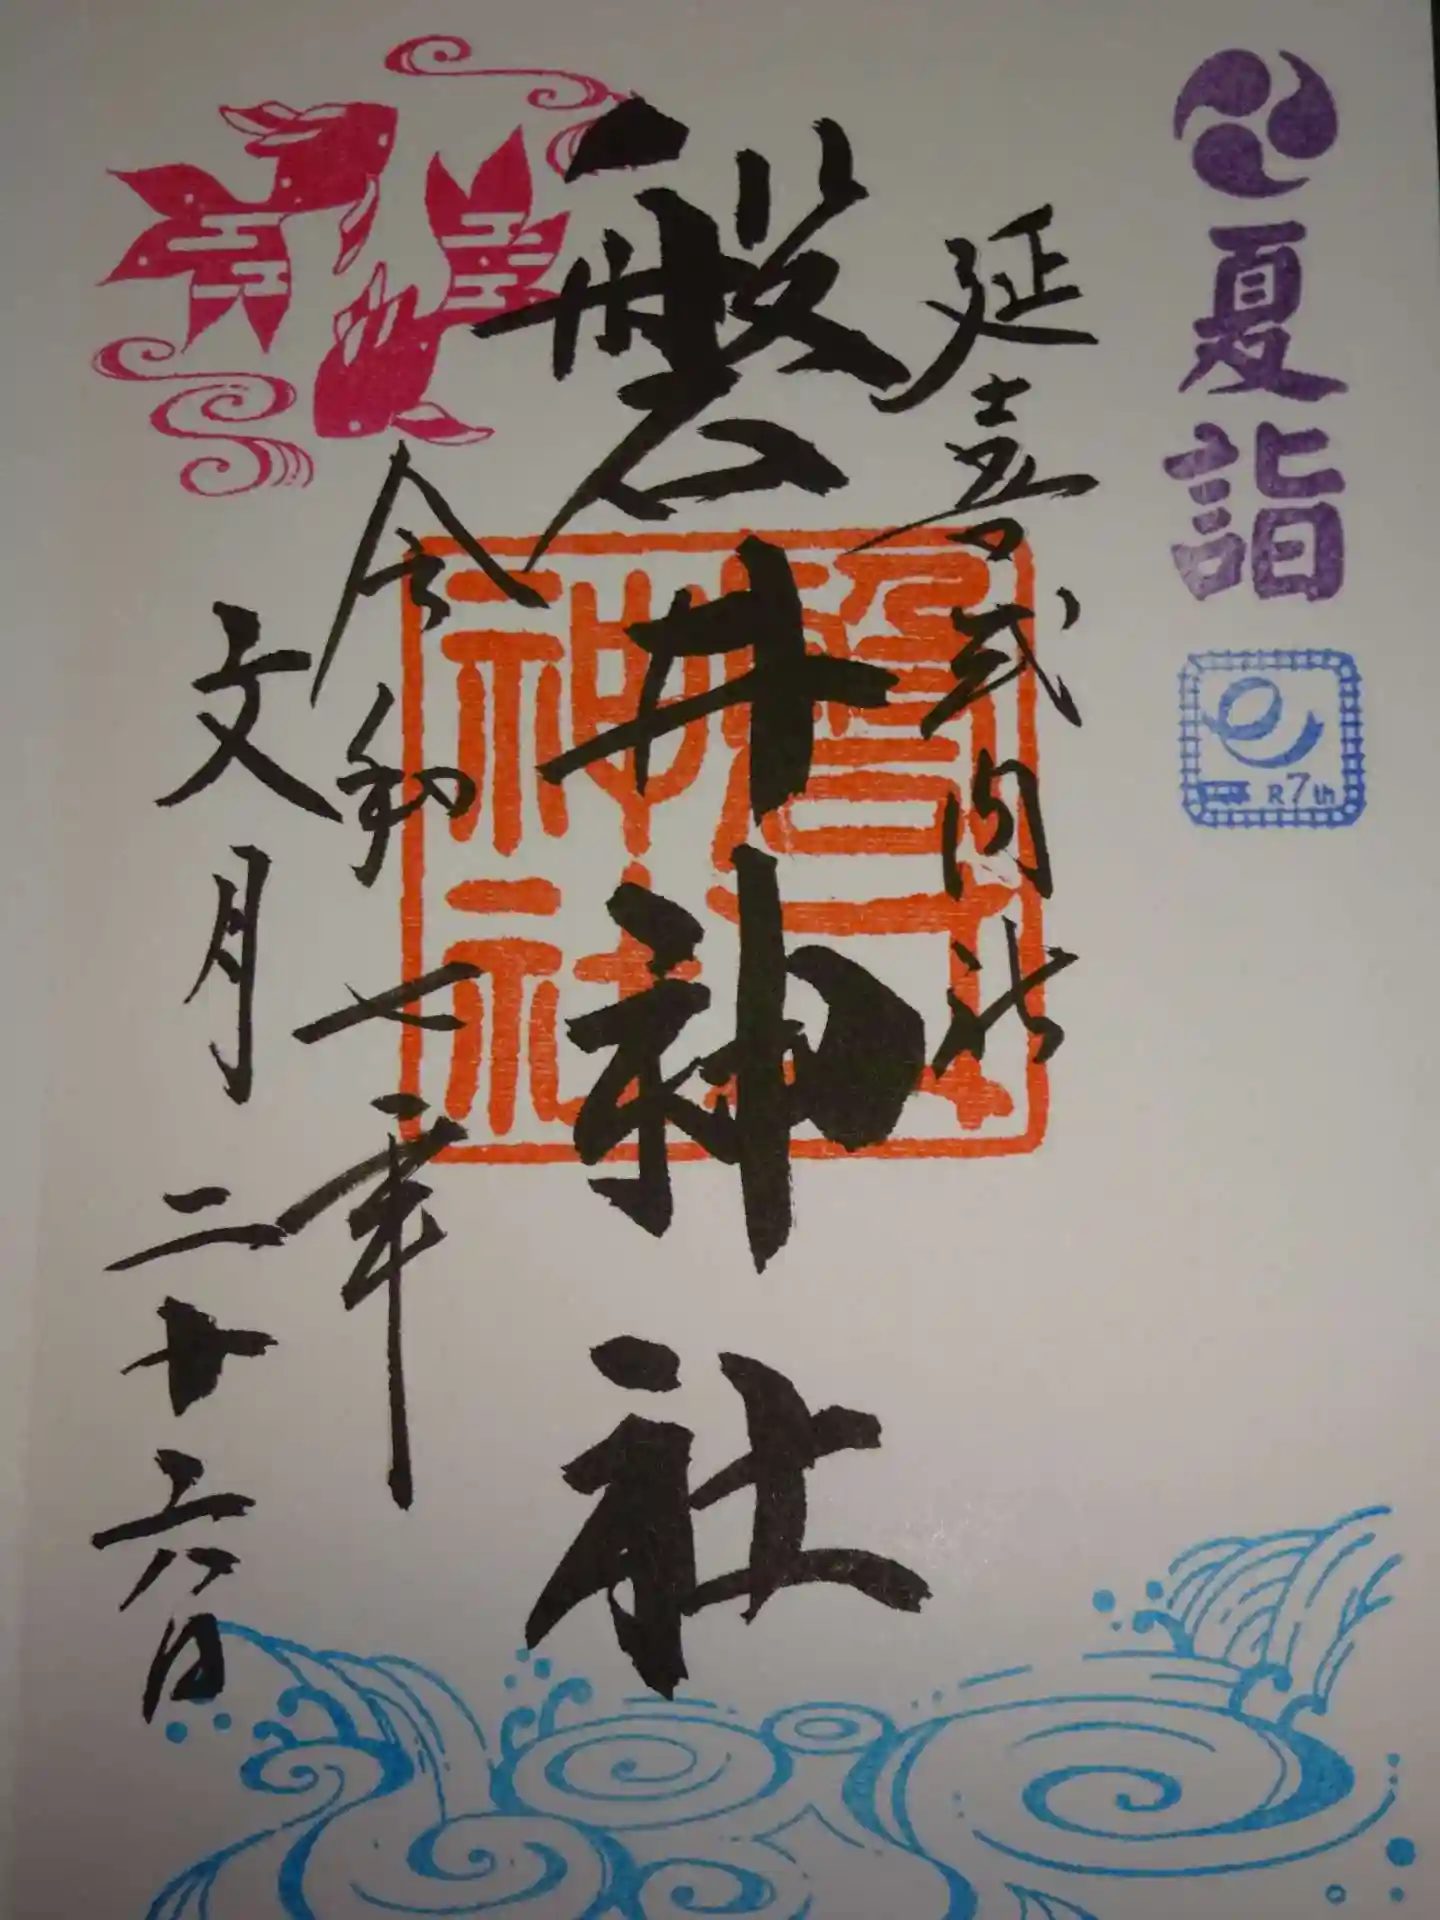 夏詣
R7th
延喜式内社
磐井神社
令和七年
文月二十六日